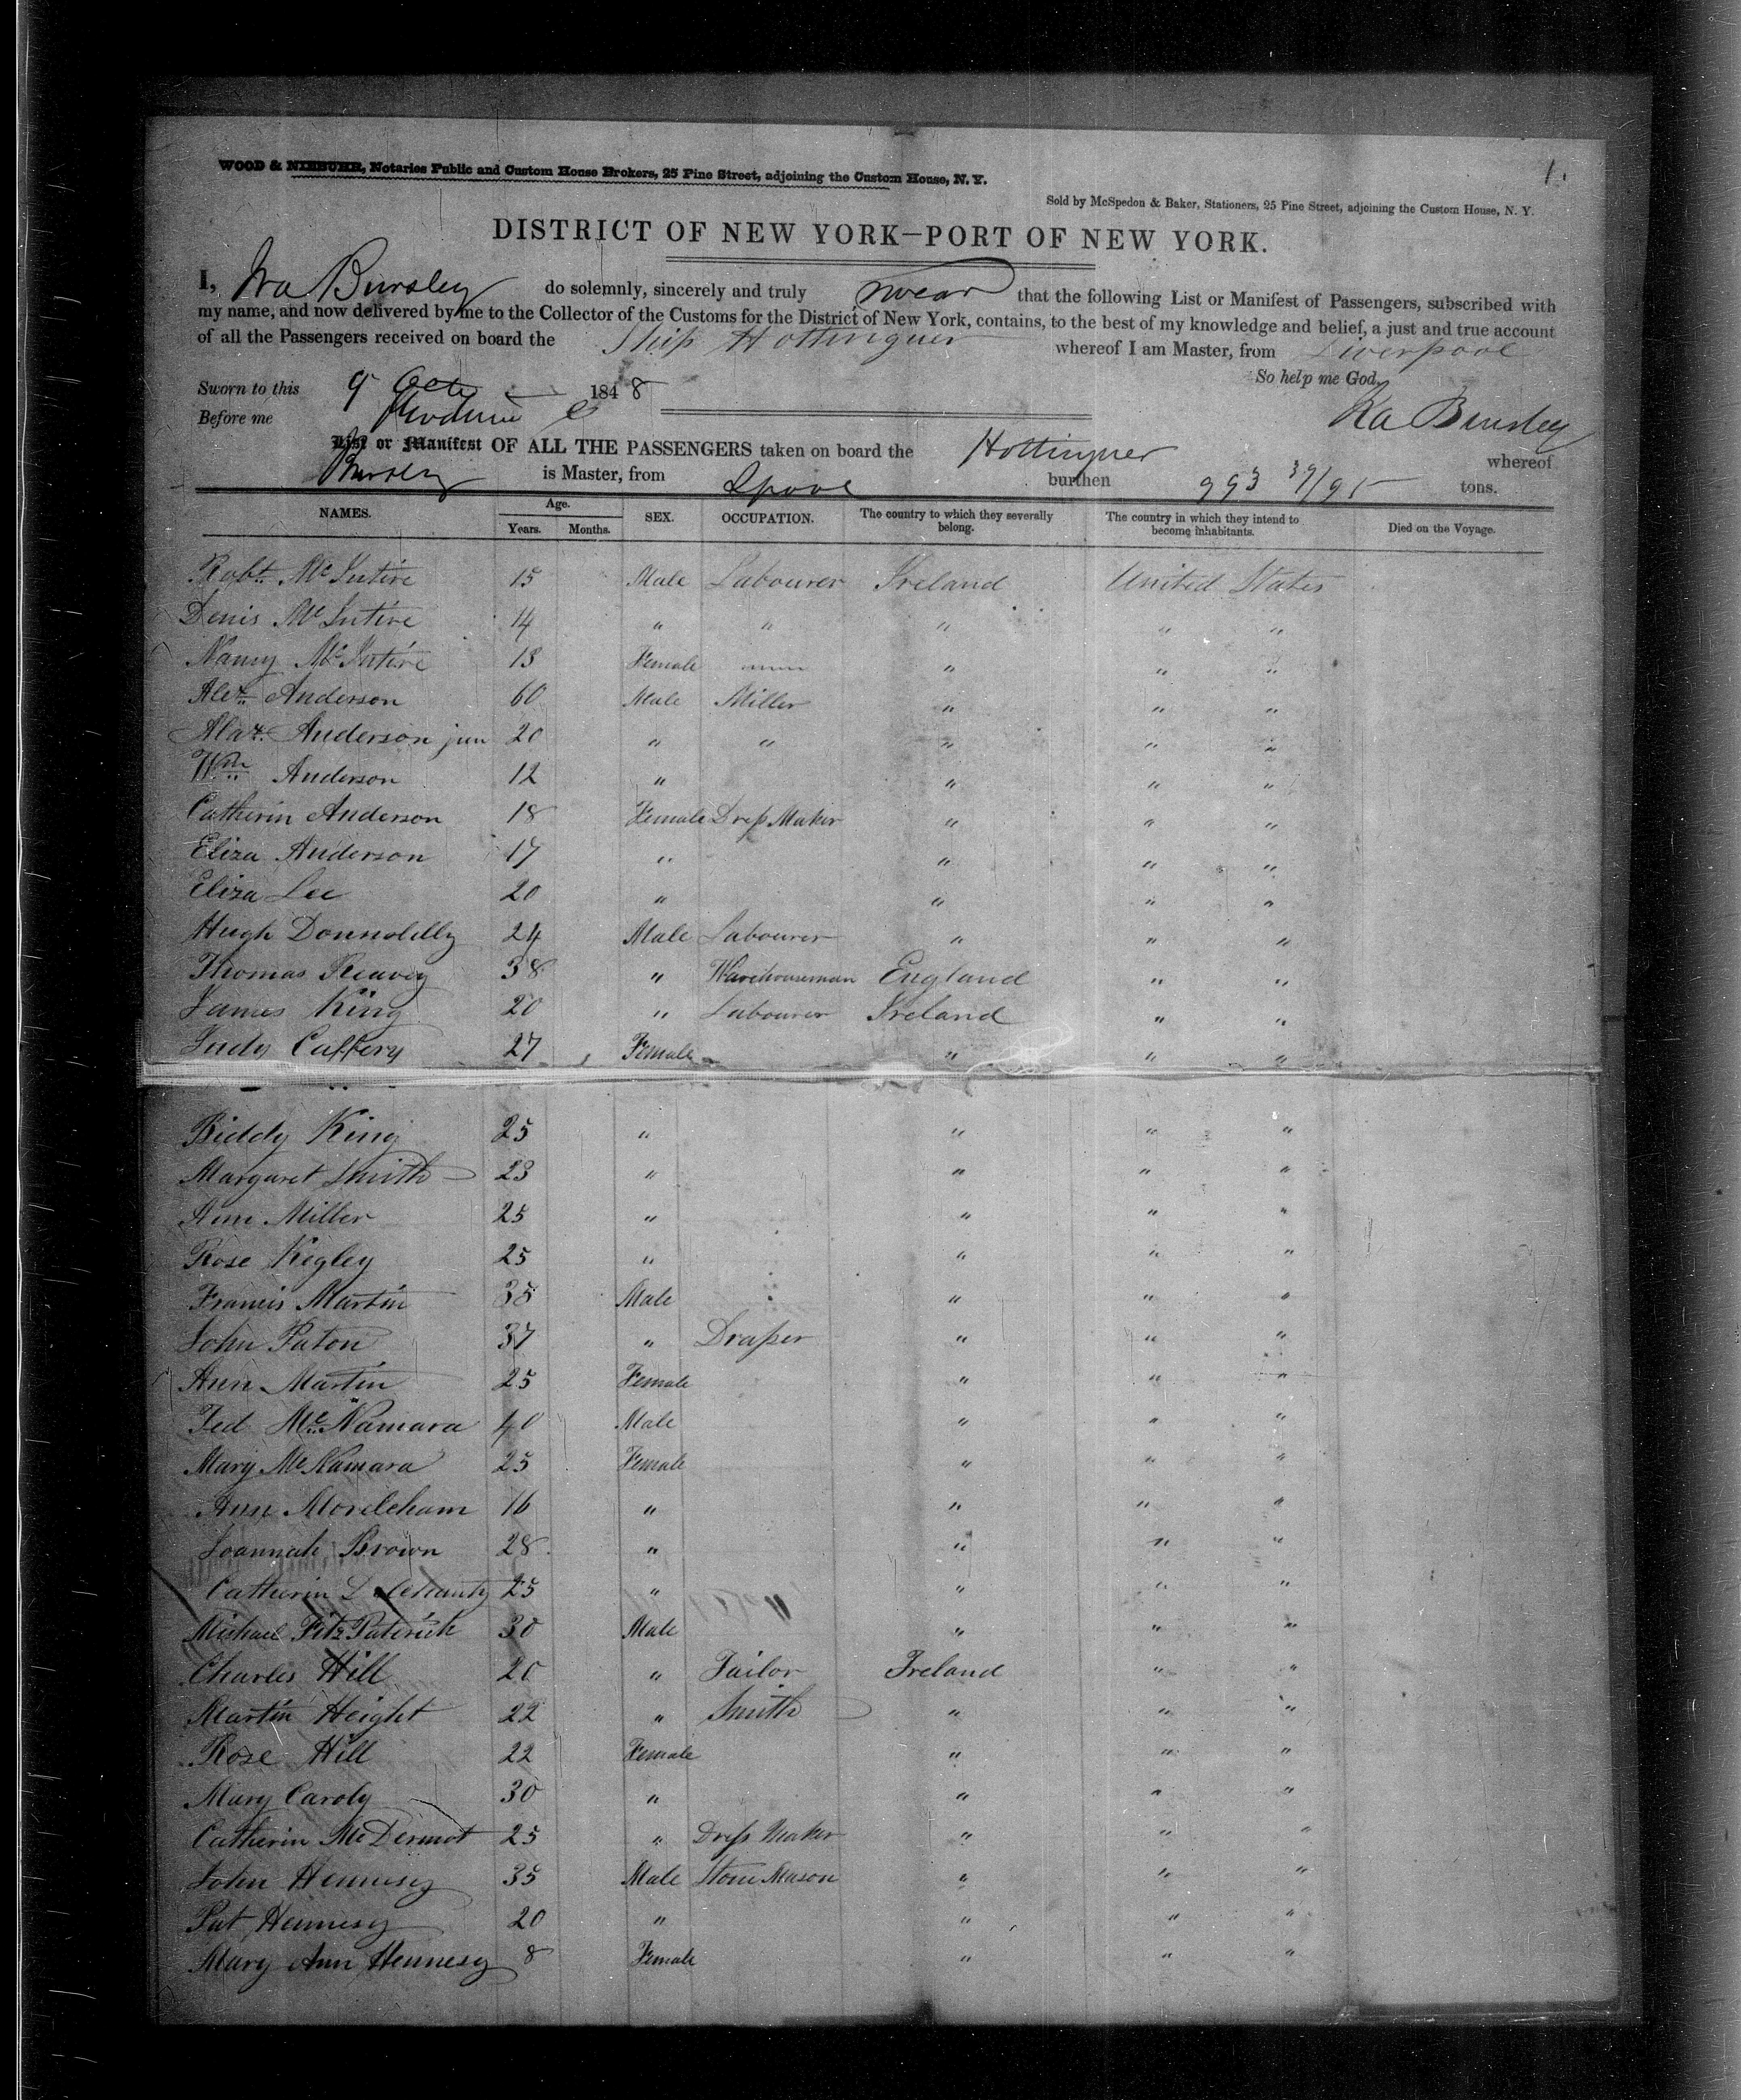 1.
WOOD & NIEBUHR, Notaries Public and Custom House Brokers, 25 Pine Street, adjoining the Custom House, N. Y.
Sold by McSpedon & Baker, Stationers, 25 Pine Street, adjoining the Custom House, N. Y.
DISTRICT OF NEW YORK—PORT OF NEW YORK.
I, Ira Bursley do solemnly, sincerely and truly swear that the following List or Manifest of Passengers, subscribed with
my name, and now delivered by me to the Collector of the Customs for the District of New York, contains, to the best of my knowledge and belief, a just and true account
of all the Passengers received on board the Ship Hottinguer whereof I am Master, from Liverpool
So help me God.
Sworn to this 9 Oct 1848
Before me
Ira Bursley
List or Manifest OF ALL THE PASSENGERS taken on board the Hottinguer whereof
Bursley is Master, from Lpool burthen 993 37/95 tons.
NAMES. Age. Years. Months. SEX. OCCUPATION. The country to which they severally belong. The country in which they intend to become inhabitants. Died on the Voyage.
Robt. Mc Intire 15 Male Labourer Ireland United States
Denis Mc Intire 14 " " " " "
Nancy Mc Intire 13 Female " " "
Alexr. Anderson 60 Male Miller " " "
Alexr. Anderson jun 20 " " " " "
Wm Anderson 12 " " " "
Catherin Anderson 18 Female Dress Maker " " "
Eliza Anderson 17 " " " "
Eliza Lee 20 " " " "
Hugh Donnolilly 24 Male Labourer " " "
Thomas Reavey 38 " Warehouseman England " "
James King 20 " Labourer Ireland " "
Judy Caffery 27 Female " " "
Biddy King 25 " " " "
Margaret Smith 23 " " " "
Ann Miller 25 " " " "
Rose Kegley 25 " " " "
Francis Martin 35 Male " " "
John Paton 37 " Draper " " "
Ann Martin 25 Female " " "
Ted Mc Namara 40 Male " " "
Mary Mc Namara 25 Female " " "
Ann 16 " " " "
Joannah Brown 28 " " " "
Catherin 25 " " " "
Michael Fitz Paterick 30 Male " " "
Charles Hill 20 " Tailor Ireland " "
Martin Height 22 " Smith " " "
Rose Hill 22 Female " " "
Mary Caroly 30 " " " "
Catherin Mc Dermot 25 " Dress Maker " " "
John Hennesy 35 Male Stone Mason " " "
Pat Hennesy 20 " " " "
Mary Ann Hennesy 8 Female " " "